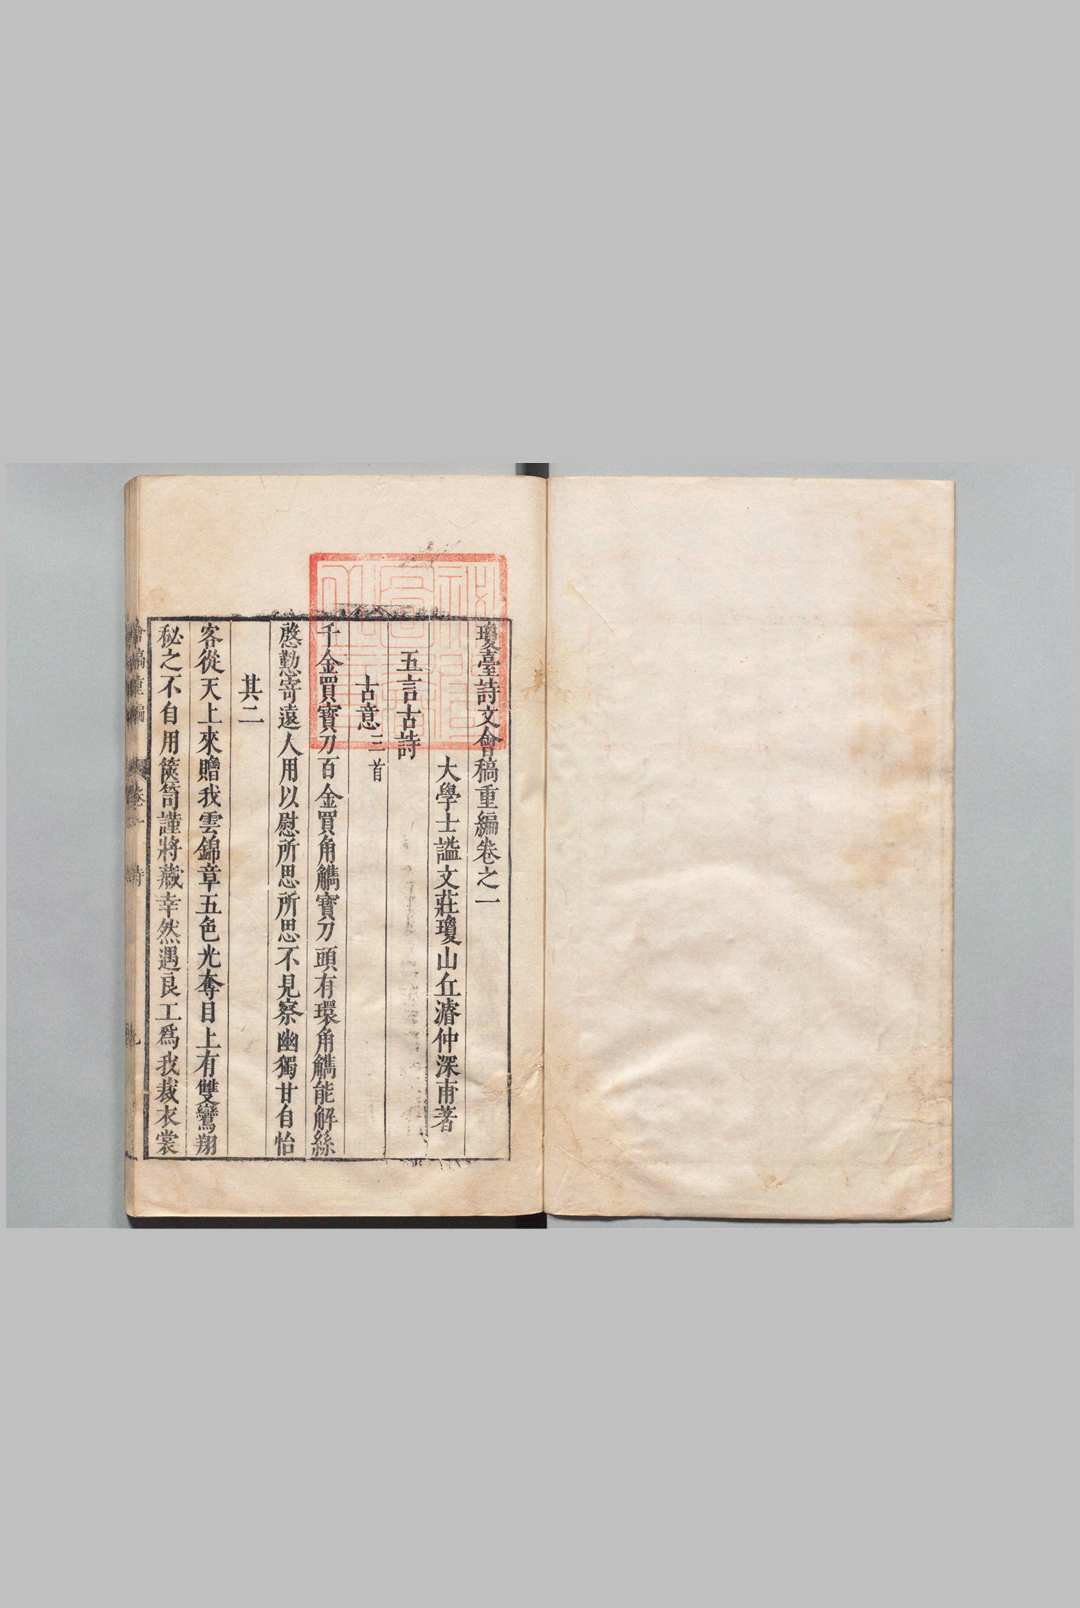 瓊臺詩文會稿重編卷之一
大學士謚文莊瓊山丘濬仲深甫著
五言古詩
古意三首
千金買寶刀百金買角觿寶刀頭有環角觿能解絲
慇懃寄遠人用以慰所思所思不見察幽獨甘自怡
其二
客從天上來贈我雲錦章五色光奪目上有雙鸞翔
秘之不自用篋笥謹將藏幸然遇良工爲我裁衣裳
會稿重編 卷一 詩